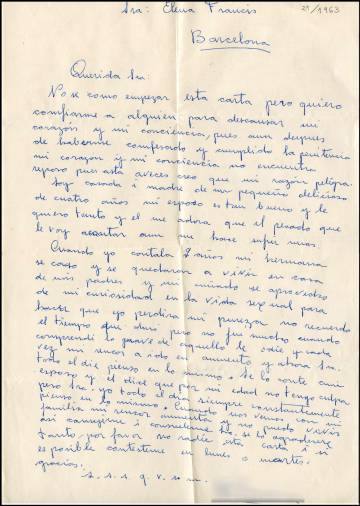 Sra: Elena Francis
21/1963
Barcelona
Querida Sra:
No se como empezar esta carta pero quiero
confiarme a alguien para descansar mi
corazón y mi conciencia, pues aun despues
de haberme confesado y cumplido la penitencia
mi corazon y mi conciencia no encuentra
reposo pues asta aveces creo que mi razón peligra.
Soy casada i madre de un pequeño delicioso
de cuatro años mi esposo es tan bueno y le
quiero tanto y el me adora que el pecado que
le voy acontar aun me hace sufrir mas.
Cuando yo contaba 8 años mi hermana
se caso y se quedaron a vivir en casa
de mis padres y mi cuñado se aprovecho
de mi curiosidad en la vida sexual para
hacer que yo perdira mi pureza no recuerdo
el tiempo que duri pero no fue mucho cuando
comprendi lo grave de aquello le odie y cada
vez mi rencor a ido en aumento y ahora Sra.
todo el dia pienso en lo mismo. Se lo conte a mi
esposo y el dice que por mi edad no tengo culpa
pero Sra. yo todo el dia siempre constantemente
pienso en lo mismo. Cuando nos vemos con mi
familia mi rencor aumenta y no puedo vivir
asi aconsejeme i consueleme Sra. se lo agradecere
tanto. por favor no radie esta carta i si
es posible contesteme en lunes o martes.
gracias.
s. s. s q. v. s. m.